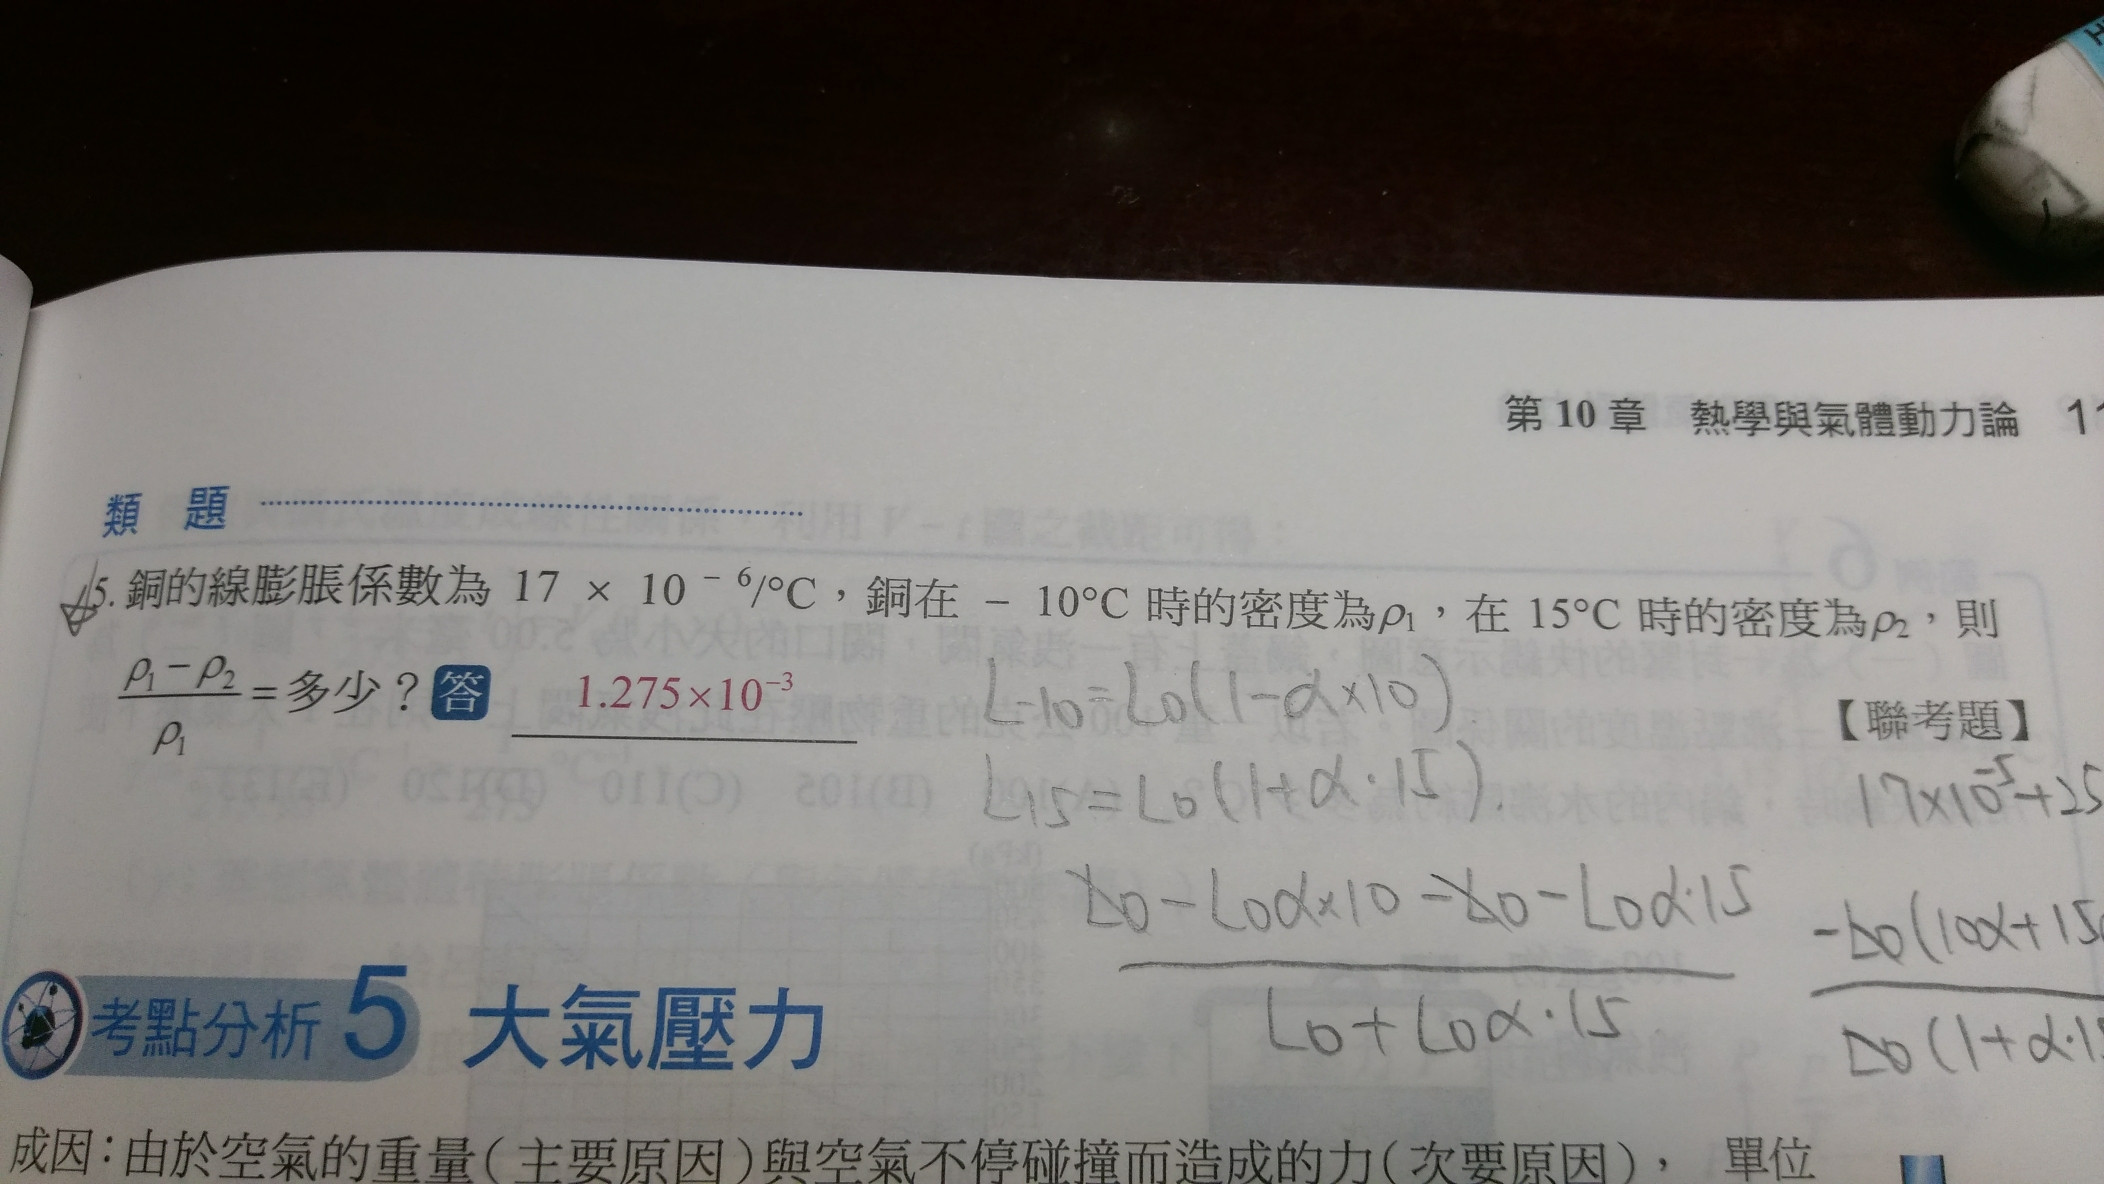 第 10 章 熱學與氣體動力論 11
類 題
5. 銅的線膨脹係數為 17 × 10⁻⁶/°C,銅在 − 10°C 時的密度為ρ₁,在 15°C 時的密度為ρ₂,則
(ρ₁ − ρ₂)/ρ₁ = 多少?答 1.275×10⁻³
【聯考題】
L₋₁₀=L₀(1−α×10)
L₁₅=L₀(1+α·15).
17×10⁻⁵+25
L₀−L₀α×10−L₀−L₀α·15
L₀+L₀α·15
−L₀(10α+15
L₀(1+α·1
考點分析 5 大氣壓力
成因:由於空氣的重量(主要原因)與空氣不停碰撞而造成的力(次要原因), 單位